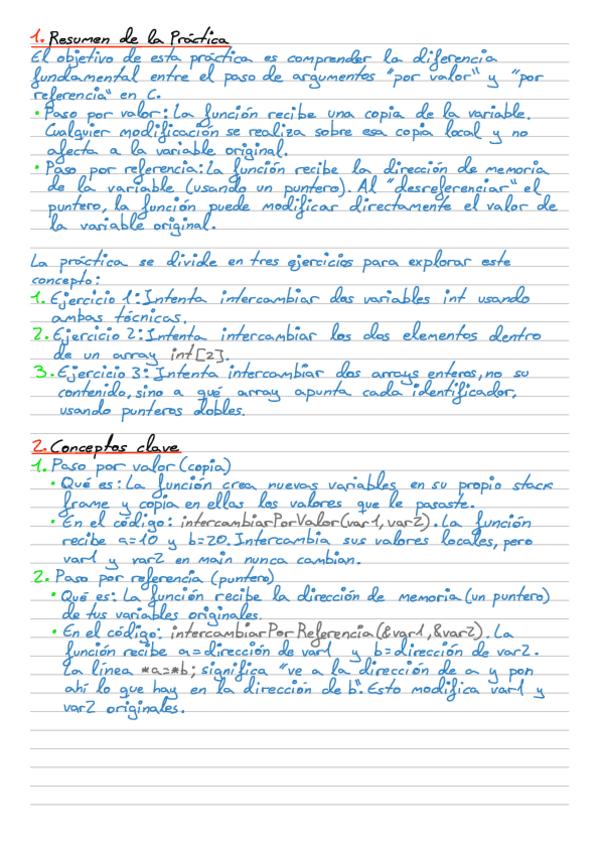 1. Resumen de la Práctica
El objetivo de esta práctica es comprender la diferencia
fundamental entre el paso de argumentos "por valor" y "por
referencia" en C.
• Paso por valor: La función recibe una copia de la variable.
Cualquier modificación se realiza sobre esa copia local y no
afecta a la variable original.
• Paso por referencia: La función recibe la dirección de memoria
de la variable (usando un puntero). Al "desreferenciar" el
puntero, la función puede modificar directamente el valor de
la variable original.
La práctica se divide en tres ejercicios para explorar este
concepto:
1. Ejercicio 1: Intenta intercambiar dos variables int usando
ambas técnicas.
2. Ejercicio 2: Intenta intercambiar los dos elementos dentro
de un array int[2].
3. Ejercicio 3: Intenta intercambiar dos arrays enteros, no su
contenido, sino a qué array apunta cada identificador,
usando punteros dobles.
2. Conceptos clave
1. Paso por valor (copia)
• Qué es: La función crea nuevas variables en su propio stack
frame y copia en ellas los valores que le pasaste.
• En el código: intercambiarPorValor(var1,var2). La función
recibe a=10 y b=20. Intercambia sus valores locales, pero
var1 y var2 en main nunca cambian.
2. Paso por referencia (puntero)
• Qué es: La función recibe la dirección de memoria (un puntero)
de tus variables originales.
• En el código: intercambiarPorReferencia(&var1,&var2). La
función recibe a=dirección de var1 y b=dirección de var2.
La línea *a=*b; significa "ve a la dirección de a y pon
ahí lo que hay en la dirección de b". Esto modifica var1 y
var2 originales.